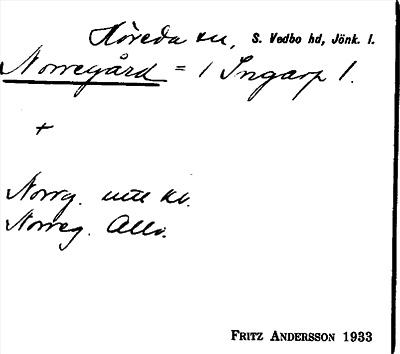 Höreda sn, S. Vedbo hd, Jönk. l.
Norregård = 1 Ingarp 1.
+
Norrg. ute kv.
Norreg. Allm.
FRITZ ANDERSSON 1933